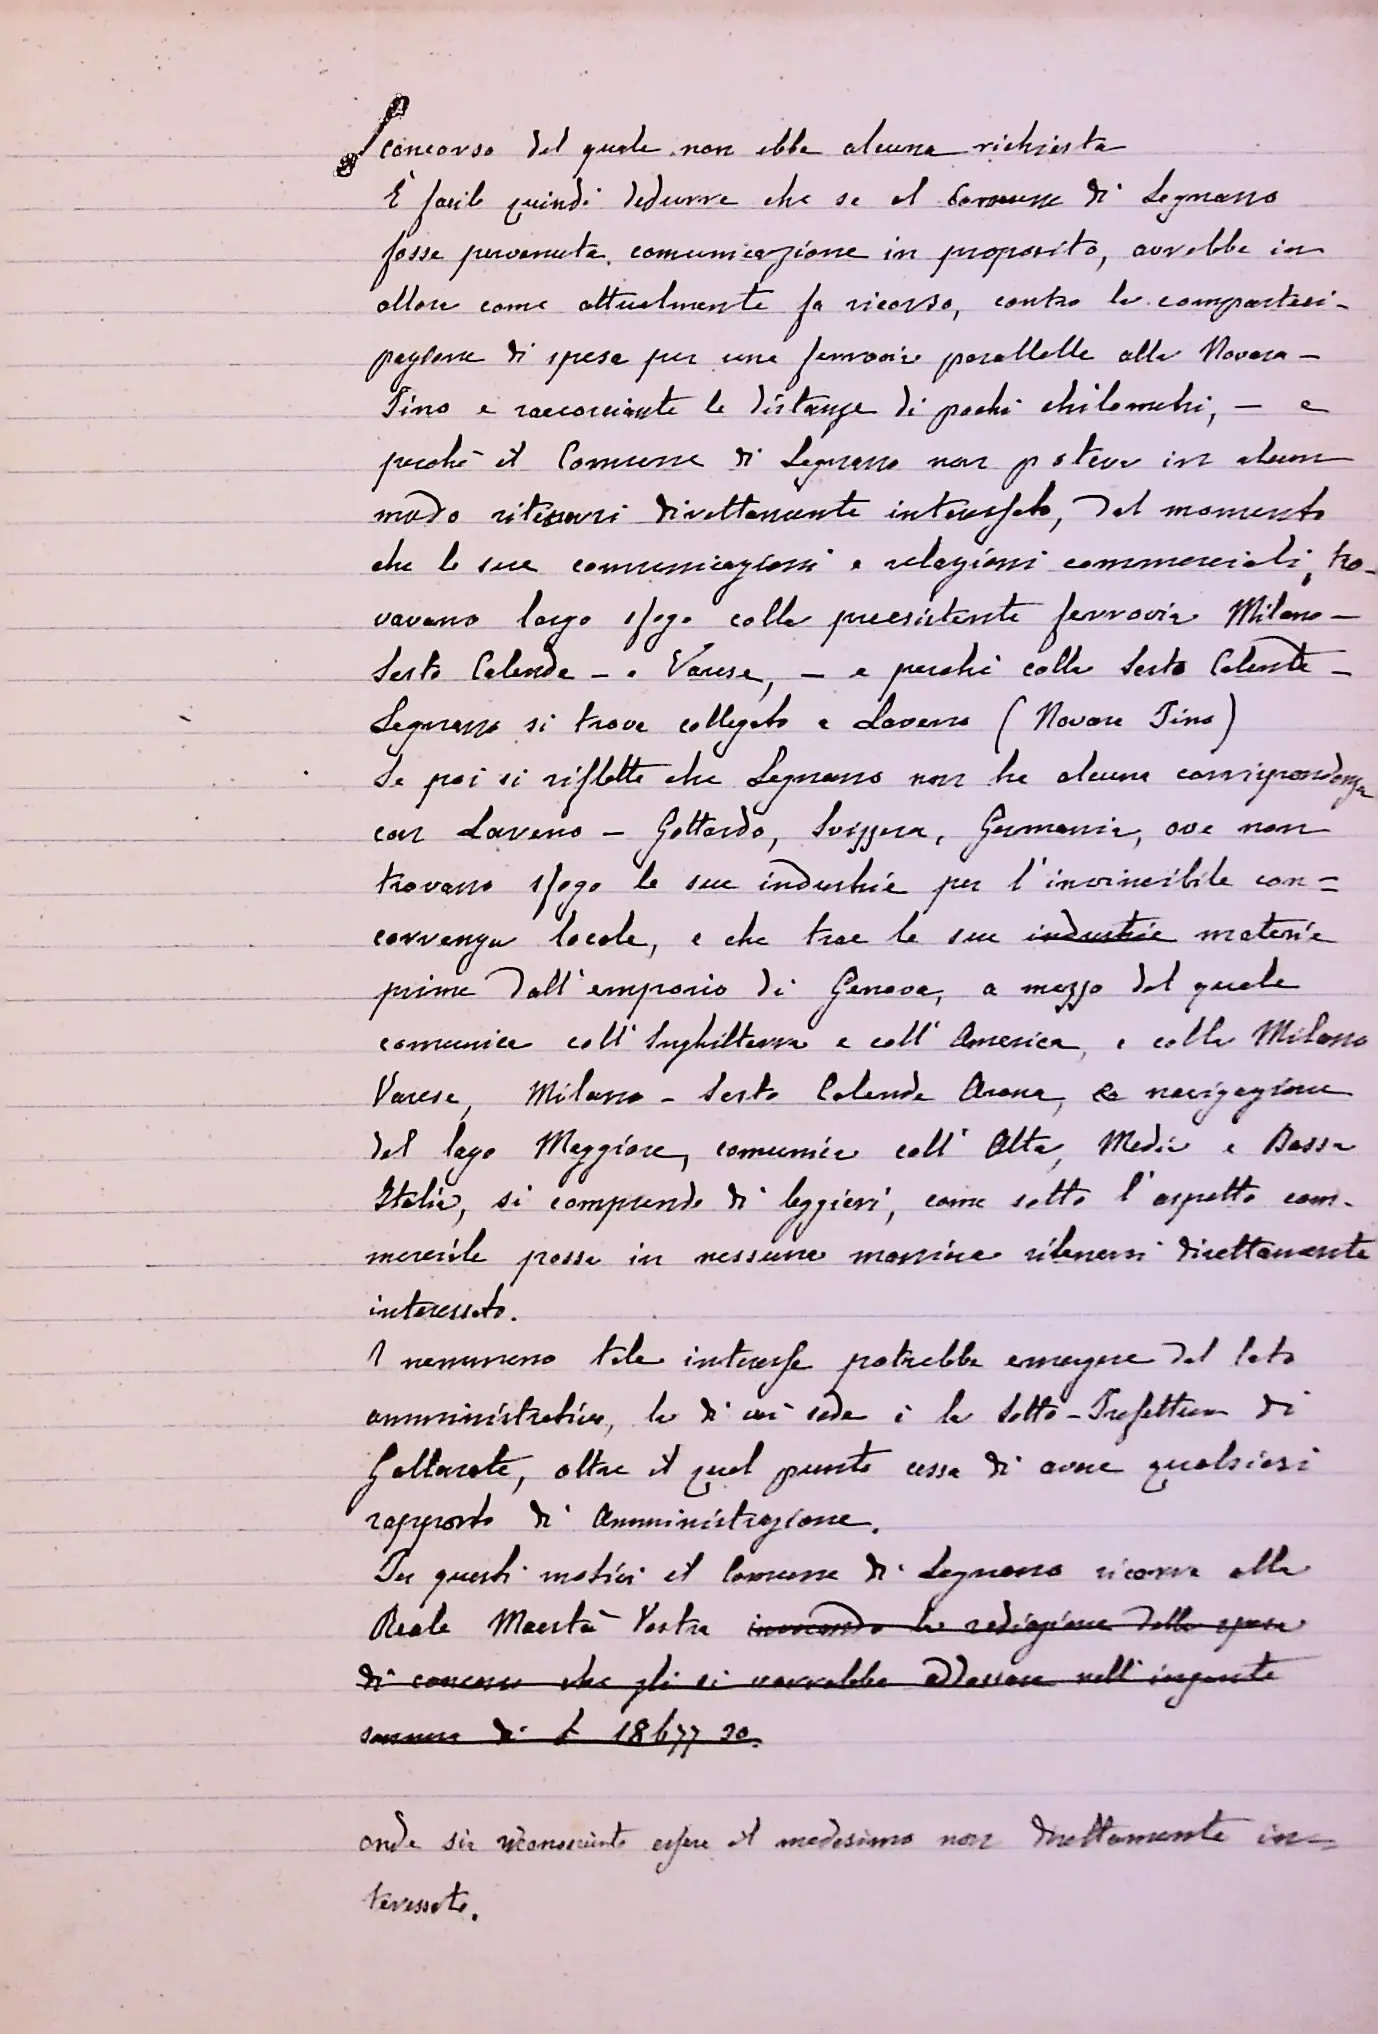 concorso del quale non ebbe alcuna richiesta
È facile quindi dedurre che se al Comune di Legnano
fosse pervenuta comunicazione in proposito, avrebbe in
allora come attualmente fa ricorso, contro la comparteci-
pazione di spesa per una ferrovia parallella alla Novara-
Pino e raccorciante le distanze di pochi chilometri, – e
perchè il Comune di Legnano non poteva in alcun
modo ritenersi direttamente interessato, dal momento
che le sue comunicazioni e relazioni commerciali, tro-
vavano largo sfogo colla preesistente ferrovia Milano-
Sesto Calende – e Varese, – e perchè colla Sesto Calende –
Legnano si trova collegato a Laveno (Novara Pino)
Se poi si riflette che Legnano non ha alcuna corrispondenza
con Laveno – Gottardo, Svizzera, Germania, ove non
trovano sfogo le sue industrie per l'invincibile con=
correnza locale, e che trae le sue industrie materie
prime dall'emporio di Genova, a mezzo del quale
comunica coll'Inghilterra e coll'America, e colla Milano
Varese, Milano – Sesto Calende Arona, e navigazione
del lago Maggiore, comunica coll'Alta, Media e Bassa
Italia, si comprende di leggieri, come sotto l'aspetto com-
merciale possa in nessuna maniera ritenersi direttamente
interessato.
nemmeno tale interesse potrebbe emergere dal lato
amministrativo, la di cui sede è la Sotto-Prefettura di
Gallarate, oltre il qual punto cessa di avere qualsiasi
rapporto di Amministrazione.
Per questi motivi il Comune di Legnano ricorre alla
Reale Maestà Vostra invocando la della spesa
di concorso che gli si vorrebbe addossare nell'ingente
somma di £ 18677 20.
onde sia riconosciuto essere il medesimo non direttamente in=
teressato.